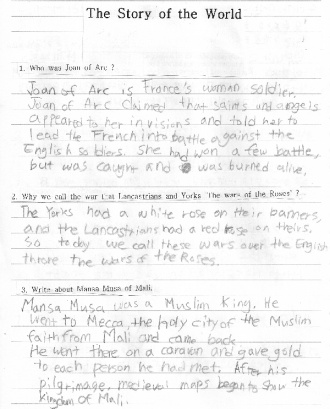 The Story of the World
1. Who was Joan of Arc ?
Joan of Arc is France's woman soldier.
Joan of Arc claimed that saints and angels
appeared to her in visions and told her to
lead the French into battle against the
English soldiers. She had won a few battle,
but was caught and was burned alive.
2. Why we call the war that Lancastrians and Yorks 'The wars of the Roses' ?
The Yorks had a white rose on their banners,
and the Lancastrians had a red rose on theirs.
So today we call these wars over the English
throne the wars of the Roses.
3. Write about Mansa Musa of Mali.
Mansa Musa was a Muslim King. He
went to Mecca, the holy city of the Muslim
faith from Mali and came back.
He went there on a caravan and gave gold
to each person he had met. After his
pilgrimage, medieval maps began to show the
kingdom of Mali.